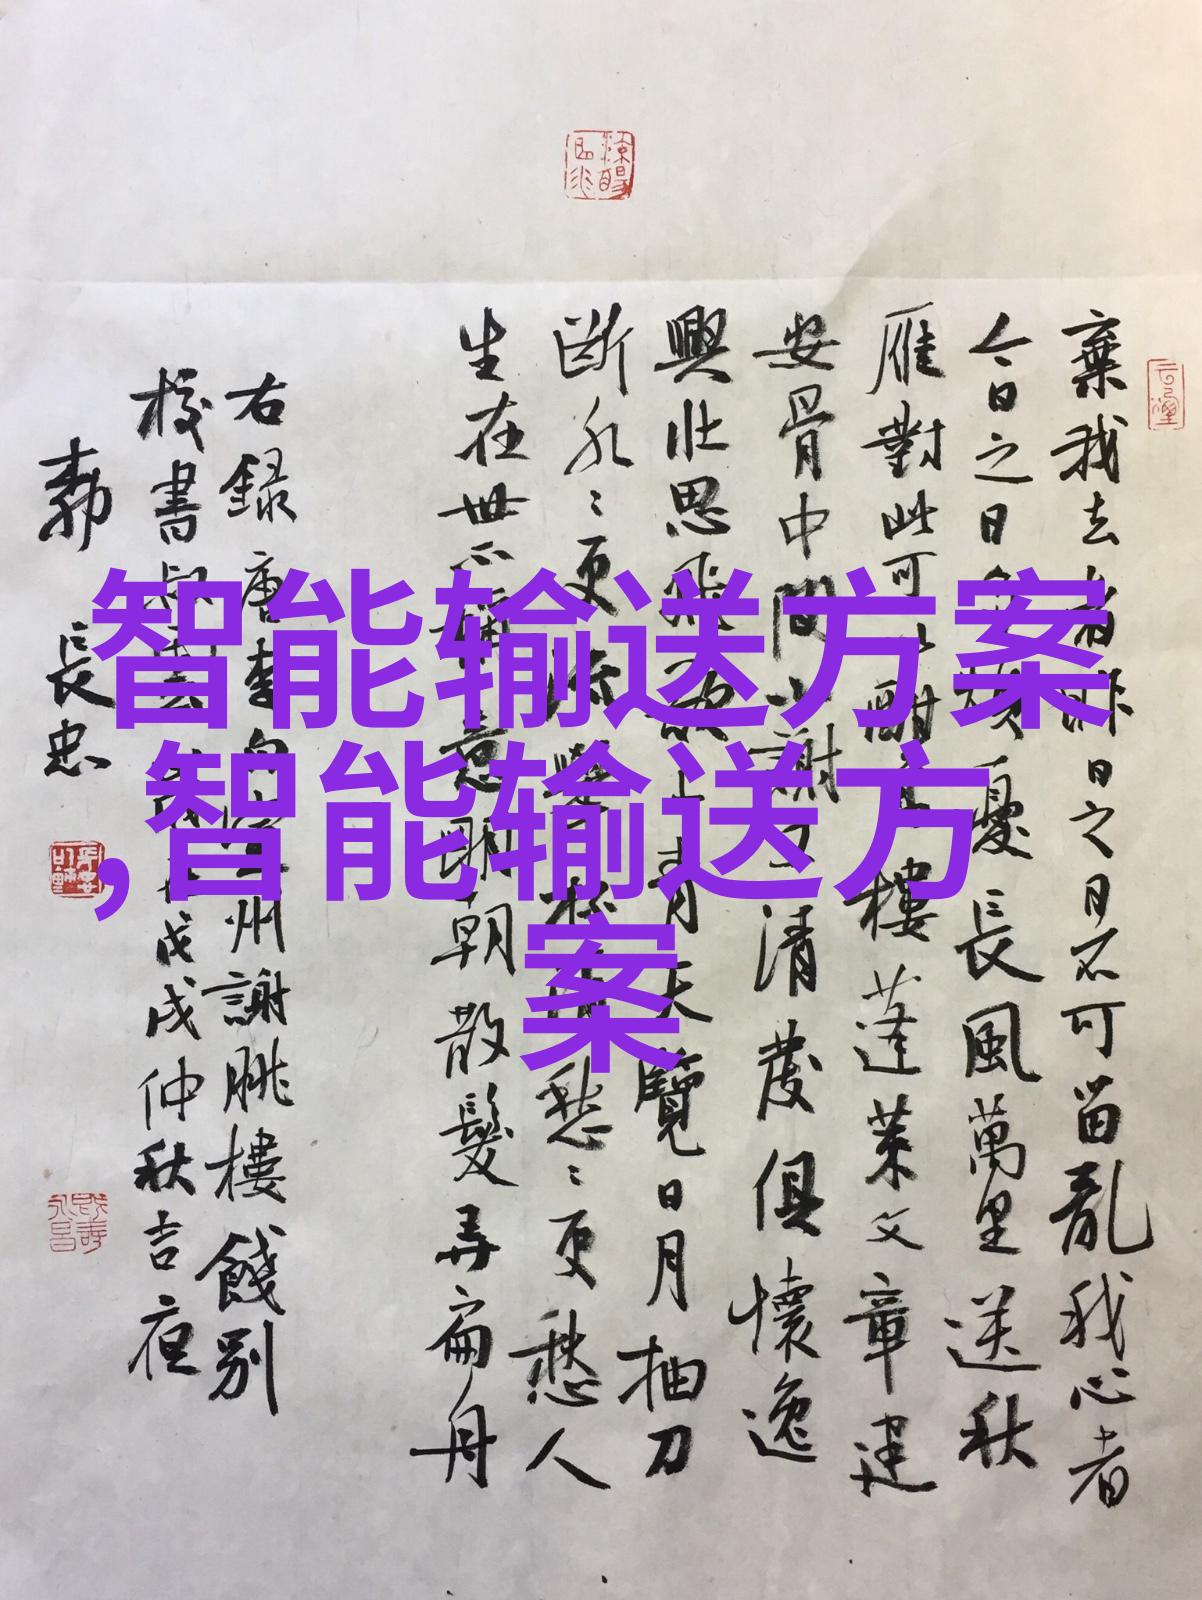 智能输送方案
,智能输送方
案
棄我去者昨日之日不可留亂我心者
今日之日多煩憂長風萬里送秋
雁對此可以酣高樓蓬萊文章建
安骨中間小謝又清發俱懷逸
興壯思飛欲上青天覽日月抽刀
斷水〻更流舉杯消愁〻更愁人
生在世不稱意明朝散髮弄扁舟
右録唐李白宣州謝朓樓餞別
校書叔雲戊戌仲秋吉夜
郭長忠